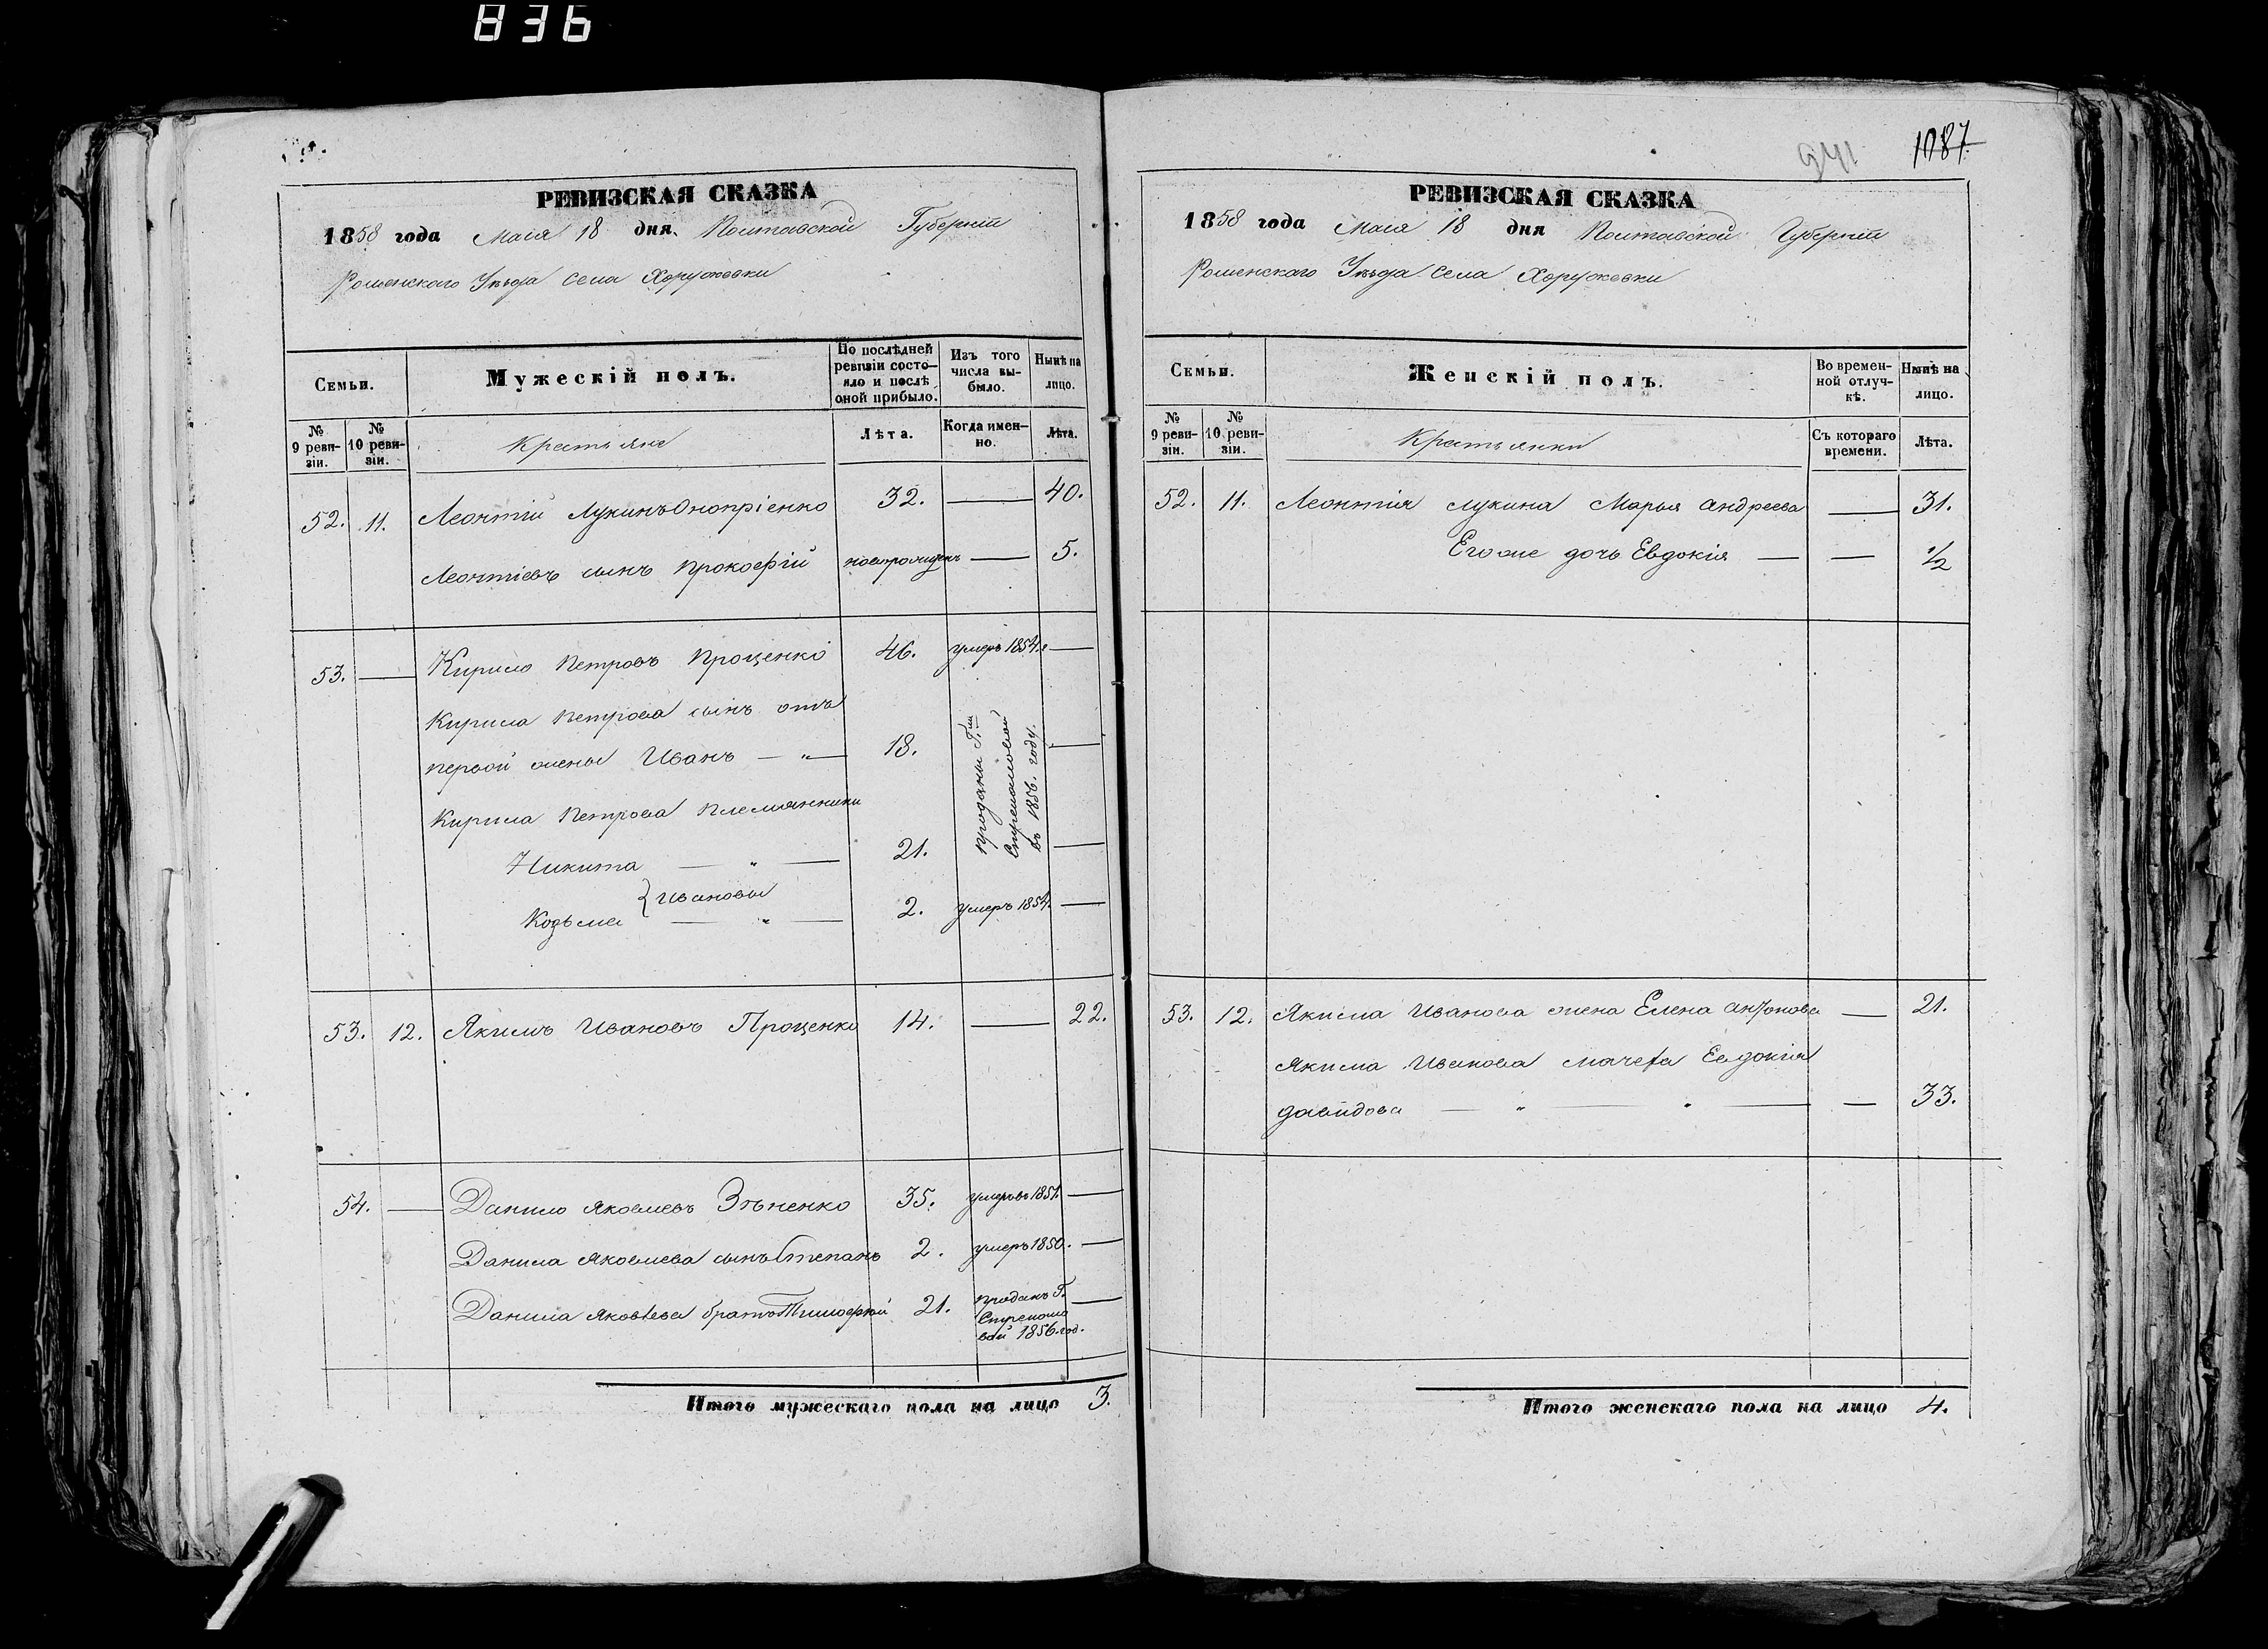 836
РЕВИЗСКАЯ СКАЗКА
1858 года Маія 18 дня Полтавской Губерніи
Роменскаго Уѣзда Села Хоружевки
Семьи.
Мужескій полъ.
По послѣдней ревизіи состояло и послѣ оной прибыло.
Изъ того числа выбыло.
Нынѣ на лицо.
№ 9 ревизіи.
№ 10 ревизіи.
Крестьяне
Лѣта.
Когда именно.
Лѣта.
52. 11. Леонтій Лукинъ Онопріенко 32. — 40.
Леонтіевъ сынъ Прокофій новорожденъ — 5.
53. — Кирило Петровъ Проценко 46. умеръ 1854.г —
Кирила Петрова сынъ отъ
первой жены Иванъ — „ — 18. —
проданы Г.жи
Стремоловой
въ 1856. году.
Кирила Петрова племянники
Никита — „ — 21. —
} Ивановы
Козьма — „ — 2. умеръ 1854. —
53. 12. Якимъ Ивановъ Проценко 14. — 22.
54. — Данило Яковлевъ Зѣненко 35. умеръ въ 1851 —
Данила Яковлева сынъ Степанъ 2. умеръ 1850. —
Данила Яковлева братъ Тимофей 21. проданъ Г. —
Стремоло
вой 1856. год.
Итого мужескаго пола на лицо 3.
941
1087.
РЕВИЗСКАЯ СКАЗКА
1858 года Маія 18 дня Полтавской Губерніи
Роменскаго Уѣзда Села Хоружевки
Семьи.
Женскій полъ.
Во временной отлучкѣ.
Нынѣ на лицо.
№ 9 ревизіи.
№ 10 ревизіи.
Крестьянки
Съ котораго времени.
Лѣта.
52. 11. Леонтія Лукина Марья Андреева — 31.
Его же дочь Евдокія — — 1/2
53. 12. Якима Иванова жена Елена Антонова — 21.
Якима Иванова мачеха Евдокія
Давидова — „ — „ — — 33.
Итого женскаго пола на лицо 4.